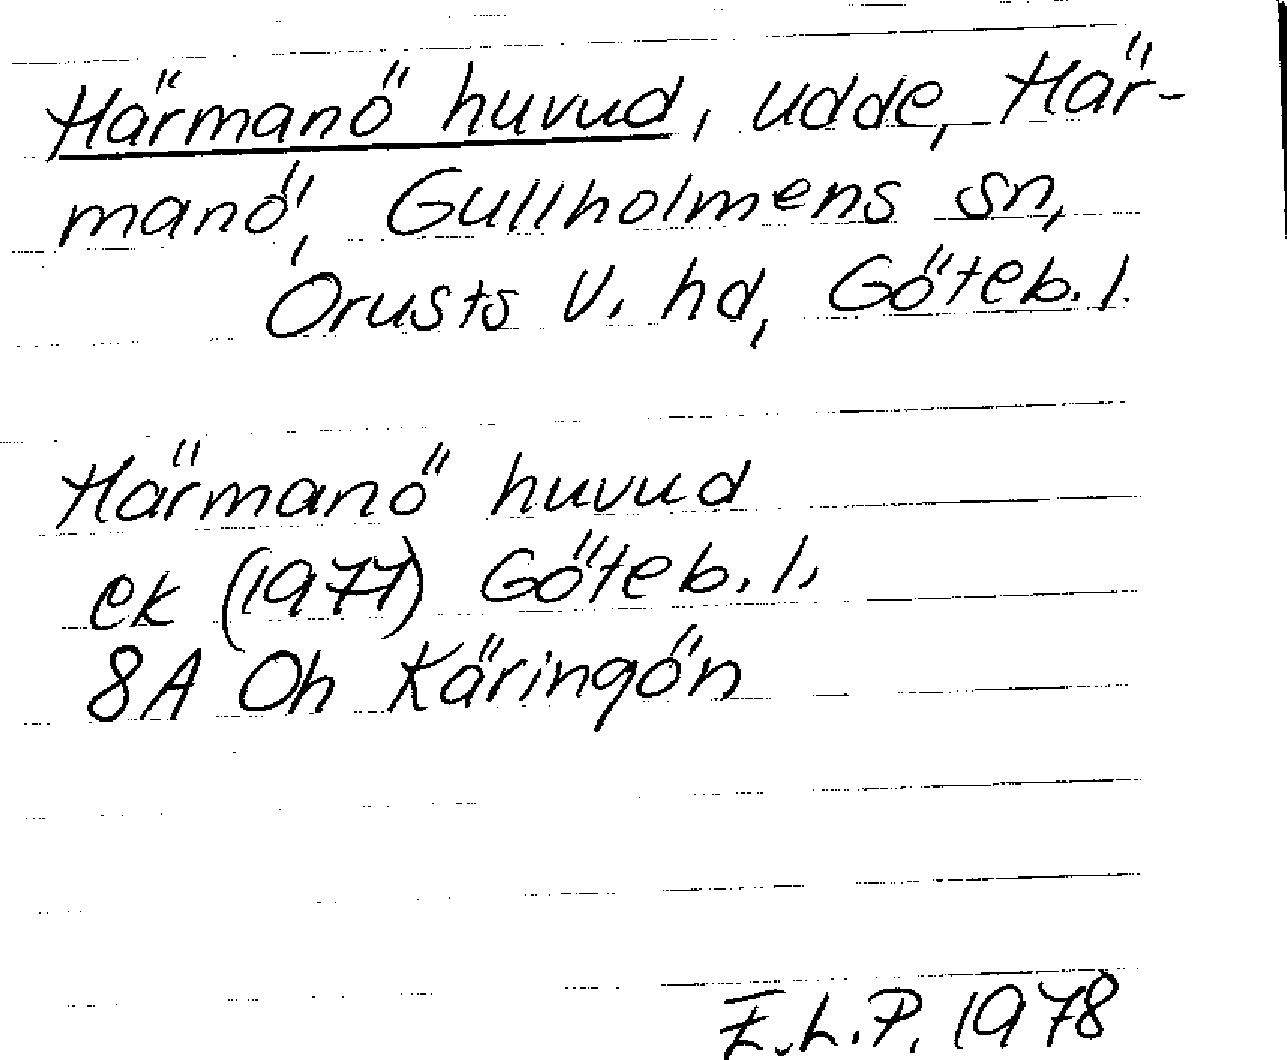 Härmanö huvud, udde, Här-
manö, Gullholmens sn,
Orusts V. hd, Göteb. l.
Härmanö huvud
ek (1977) Göteb. l.
8A Oh Käringön
E.L.P. 1978